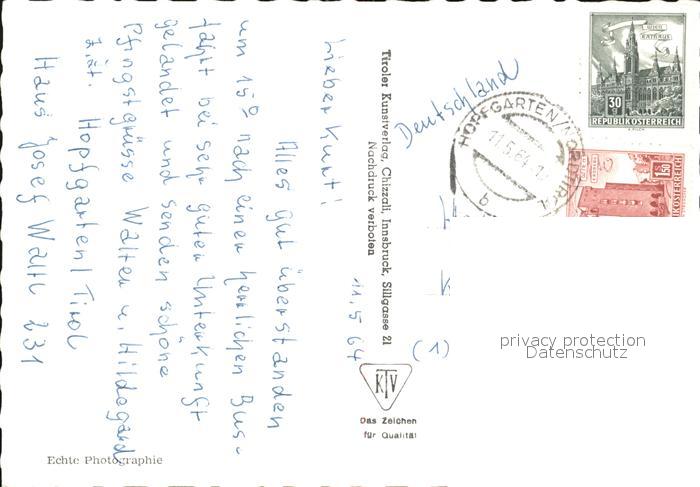 11.5.64
Lieber Kurt!
Alles gut überstanden
um 15⁰ nach einer herrlichen Bus-
fahrt bei sehr guter Unterkunft
gelandet und senden schöne
Pfingstgrüsse Walter u. Hildegard
z.Zt. Hopfgarten/Tirol
Haus Josef Waltl 231
Tiroler Kunstverlag, Chizzali, Innsbruck, Sillgasse 21
Nachdruck verboten
KTV
Das Zeichen
für Qualität
Echte Photographie
Deutschland
(1)
HOPFGARTEN/NORDTIROL
11.5.64
b
WIEN
RATHAUS
30
REPUBLIK ÖSTERREICH
S 1.50
privacy protection
Datenschutz